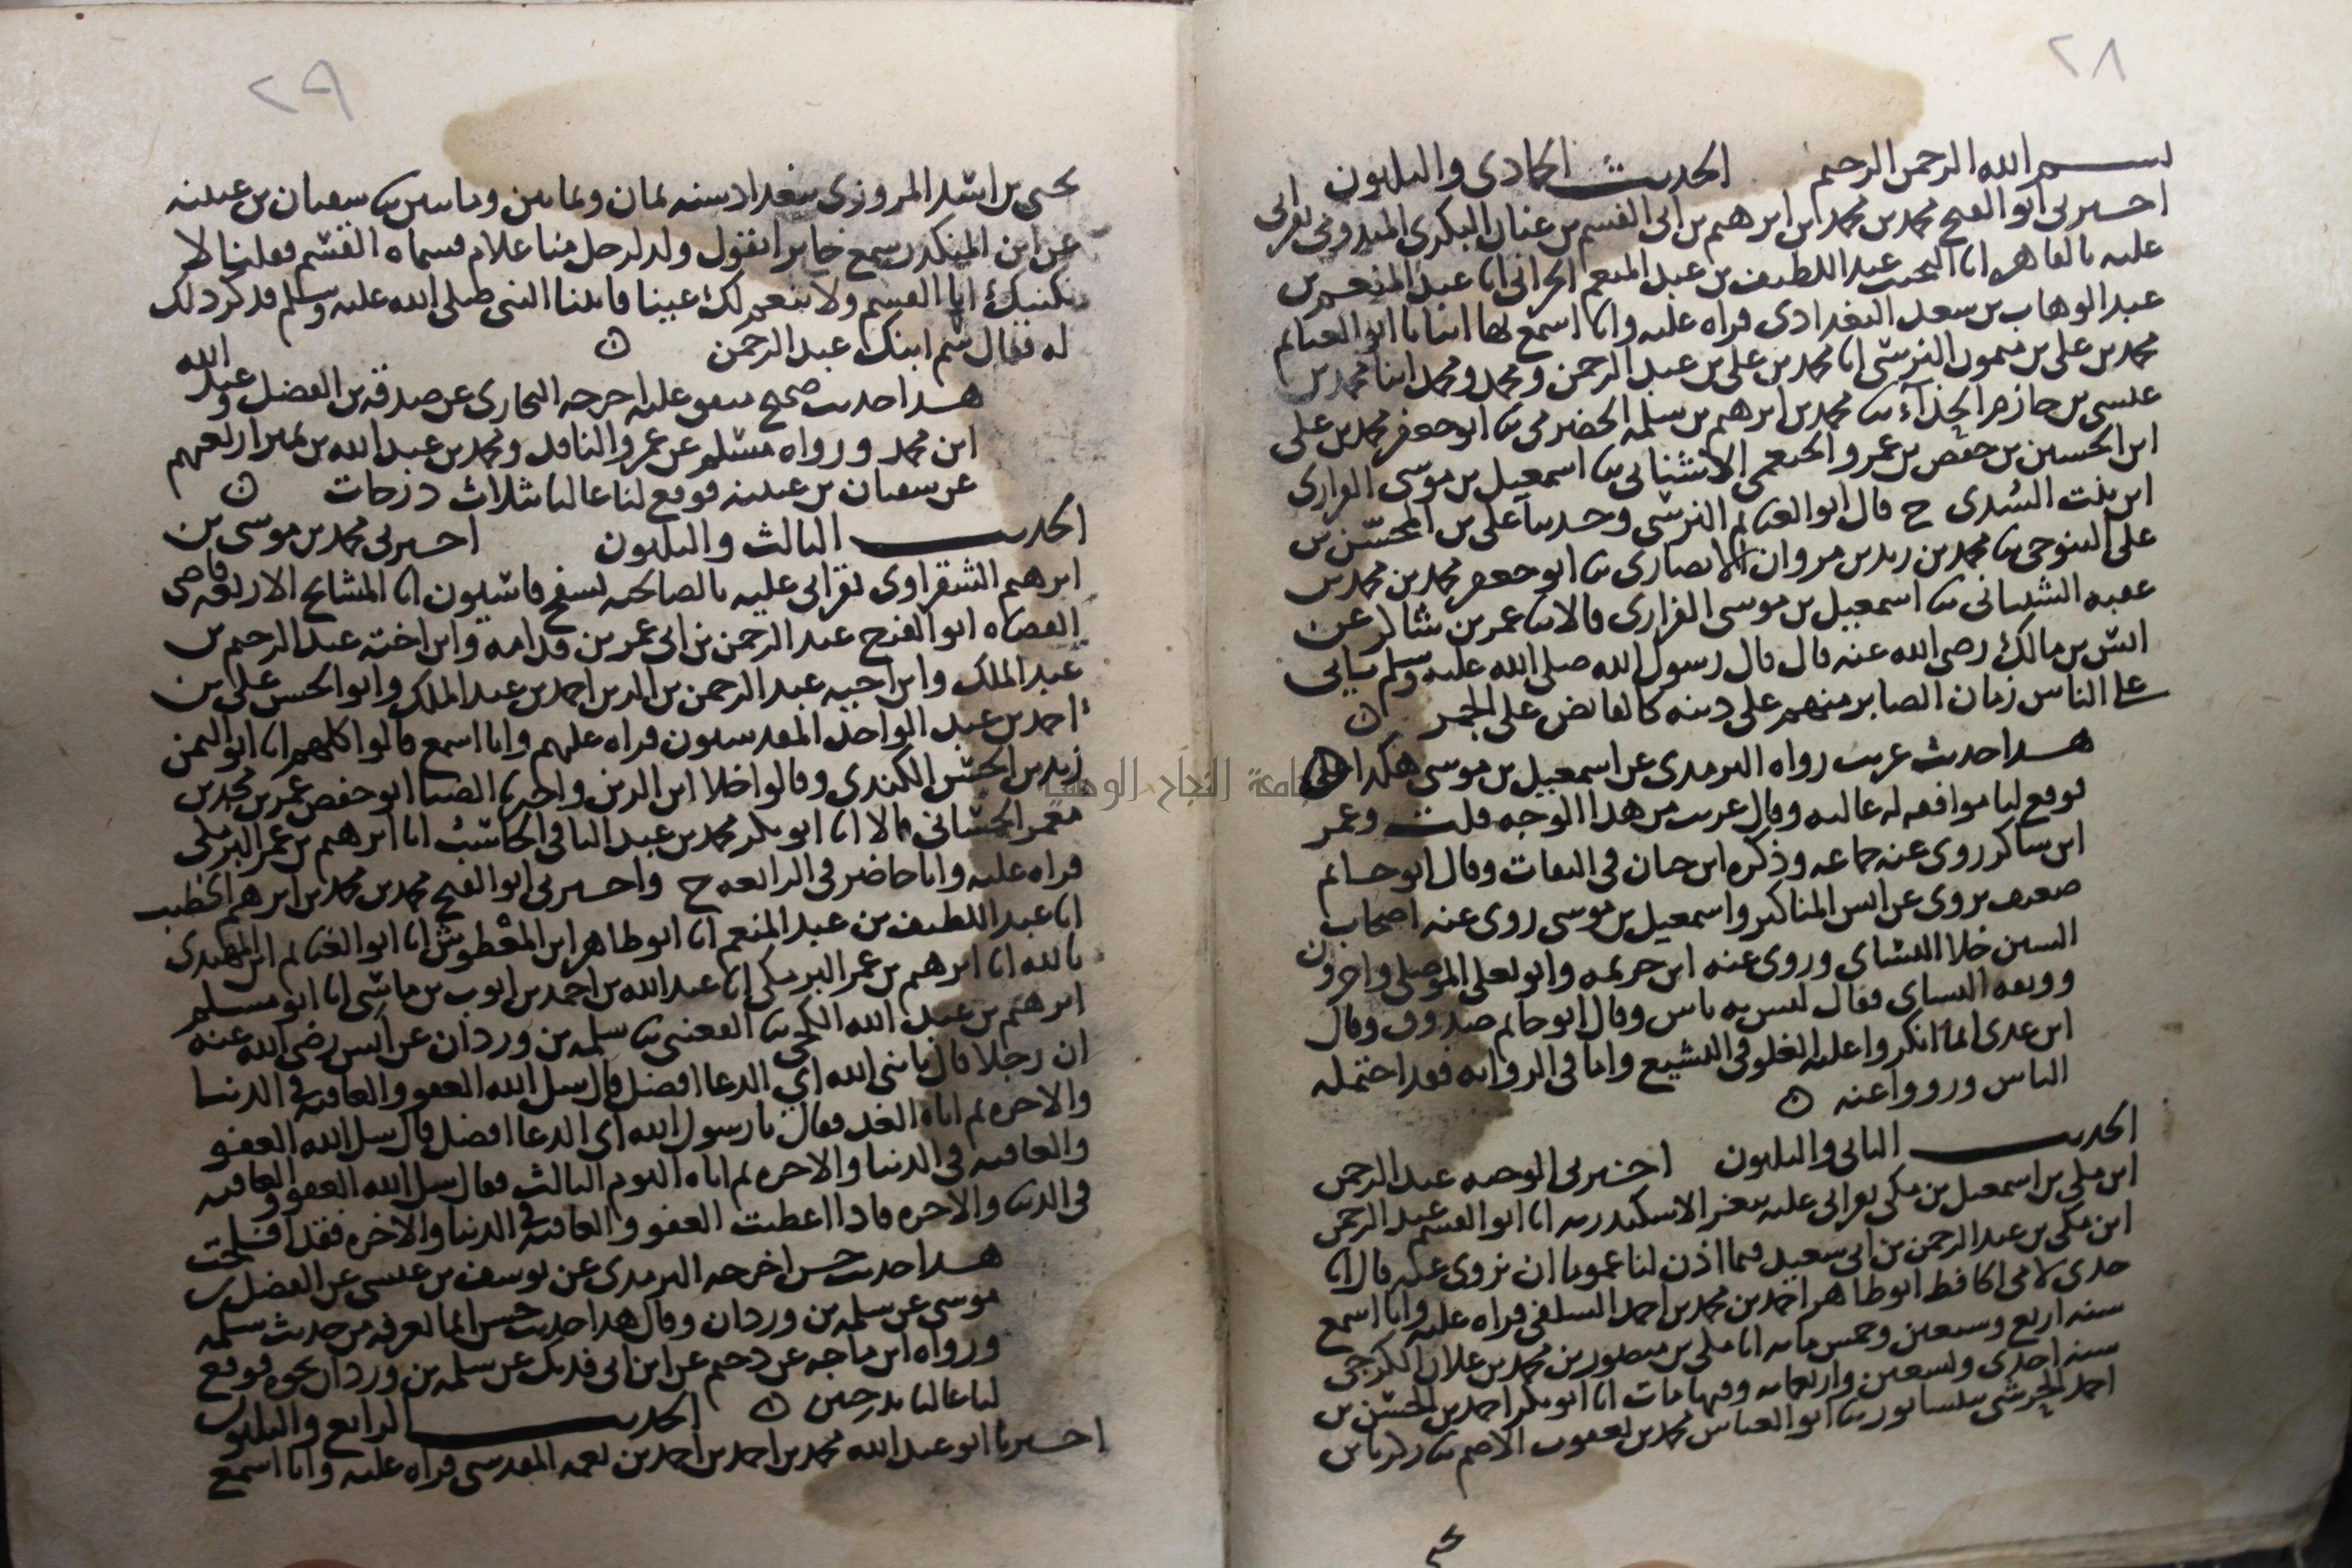 ٢٨
بسم الله الرحمن الرحيم الحديث الحادي والثلثون
اخبرني ابو الفتح محمد بن محمد ابن ابرهيم بن ابي القسم بن عنان البكري الميدومي بقراتي
عليه بالقاهره انا النجيب عبد اللطيف بن عبد المنعم الحراني انا عبد المنعم بن
عبد الوهاب بن سعد البغدادي قراه عليه وانا اسمع بها انبانا ابو الغنايم
محمد بن علي بن ميمون النرسي انا محمد بن علي بن عبد الرحمن ومحمد ومحمد ابنا محمد بن
عيسى بن حازم الحذاء ثنا محمد بن ابرهيم بن سلمه الحضرمي ثنا ابو جعفر محمد بن علي
ابن الحسين بن حفص بن عمرو الخثعمي الاشناني ثنا اسمعيل بن موسى الفزاري
ابن بنت السدي ح قال ابو الغنايم النرسي وحدثنا علي بن المحسن بن
علي التنوخي ثنا محمد بن زيد بن مروان الانصاري ثنا ابو جعفر محمد بن محمد بن
عقبه الشيباني ثنا اسمعيل بن موسى الفزاري قالا ثنا عمر بن شاكر عن
انس بن مالك رضي الله عنه قال قال رسول الله صلى الله عليه وسلم ياتي
على الناس زمان الصابر منهم على دينه كالقابض على الجمر
هذا حديث غريب رواه الترمذي عن اسمعيل بن موسى هكذا
فوقع لنا موافقه له عاليه وقال غريب من هذا الوجه قلت وعمر
ابن شاكر روى عنه جماعه وذكره ابن حبان في الثقات وقال ابو حاتم
ضعيف يروي عن انس المناكير واسمعيل بن موسى روى عنه اصحاب
السنن خلا النسائي وروى عنه ابن خزيمه وابو يعلى الموصلي واخرون
ووثقه النسائي فقال ليس به باس وقال ابو حاتم صدوق وقال
ابن عدي انما انكروا عليه الغلو في التشيع واما في الروايه فقد احتمله
الناس ورووا عنه
الحديث الثاني والثلثون اخبرني الوجيه عبد الرحمن
ابن مكي بن اسمعيل بن مكي بقراتي عليه بثغر الاسكندريه انا ابو القسم عبد الرحمن
ابن مكي بن عبد الرحمن بن ابي سعيد فيما اذن لنا عموما ان نروي عنه قال انا
جدي لامي الحافظ ابو طاهر احمد بن محمد بن احمد السلفي قراه عليه وانا اسمع
سنه اربع وسبعين وخمس مايه انا مكي بن منصور بن محمد بن علان الكرجي
سنه احدى وتسعين واربعمايه وفيها مات انا ابو بكر احمد بن الحسن بن
احمد الحرشي بنيسابور ثنا ابو العباس محمد بن يعقوب الاصم ثنا زكريا بن
٢٩
يحيى بن اسد المروزي ببغداد سنه ثمان وثمانين ومايتين ثنا سفيان بن عيينه
عن ابن المنكدر سمع جابرا يقول ولد لرجل منا غلام فسماه القسم فقلنا لا
نكنيك ابا القسم ولا ننعمك عينا فاتينا النبي صلى الله عليه وسلم فذكر ذلك
له فقال سم ابنك عبد الرحمن
هذا حديث صحيح متفق عليه اخرجه البخاري عن صدقه بن الفضل وعبد الله
ابن محمد ورواه مسلم عن عمرو الناقد ومحمد بن عبد الله بن نمير اربعتهم
عن سفيان بن عيينه فوقع لنا عاليا بثلاث درجات
الحديث الثالث والثلثون اخبرني محمد بن موسى بن
ابرهيم الشقراوي بقراتي عليه بالصالحيه بسفح قاسيون انا المشايخ الاربعه قاضي
القضاه ابو الفرج عبد الرحمن بن ابي عمر بن قدامه وابن اخته عبد الرحيم بن
عبد الملك وابن اخيه عبد الرحمن بن الزين احمد بن عبد الملك وابو الحسن علي بن
احمد بن عبد الواحد المقدسيون قراه عليهم وانا اسمع قالوا كلهم انا ابو اليمن
زيد بن الحسن الكندي وقالوا خلا ابن الزين واخبرنا ايضا ابو حفص عمر بن محمد بن
معمر الحساني قالا انا ابو بكر محمد بن عبد الباقي الحاسب انا ابرهيم بن عمر البرمكي
قراه عليه وانا حاضر في الرابعه ح واخبرني ابو الفتح محمد بن محمد بن ابرهيم الخطيب
انا عبد اللطيف بن عبد المنعم انا ابو طاهر ابن المعطوش انا ابو الغنايم ابن المهتدي
بالله انا ابرهيم بن عمر البرمكي انا عبد الله بن احمد بن ايوب بن ماسي انا ابو مسلم
ابرهيم بن عبد الله الكجي ثنا القعنبي ثنا سلمه بن وردان عن انس رضي الله عنه
ان رجلا قال يا نبي الله اي الدعا افضل قال سل الله العفو والعافيه في الدنيا
والاخره ثم اتاه الغد فقال يا رسول الله اي الدعا افضل قال سل الله العفو
والعافيه في الدنيا والاخره ثم اتاه اليوم الثالث فقال سل الله العفو والعافيه
في الدنيا والاخره فاذا اعطيت العفو والعافيه في الدنيا والاخره فقد افلحت
هذا حديث حسن اخرجه الترمذي عن يوسف بن عيسى عن الفضل بن
موسى عن سلمه بن وردان وقال هذا حديث حسن انما نعرفه من حديث سلمه
ورواه ابن ماجه عن دحيم عن ابن ابي فديك عن سلمه بن وردان نحوه فوقع
لنا عاليا بدرجتين الحديث الرابع والثلثون
اخبرنا ابو عبد الله محمد بن احمد بن احمد بن نعمه المقدسي قراه عليه وانا اسمع
جامعة النجاح الوطنية